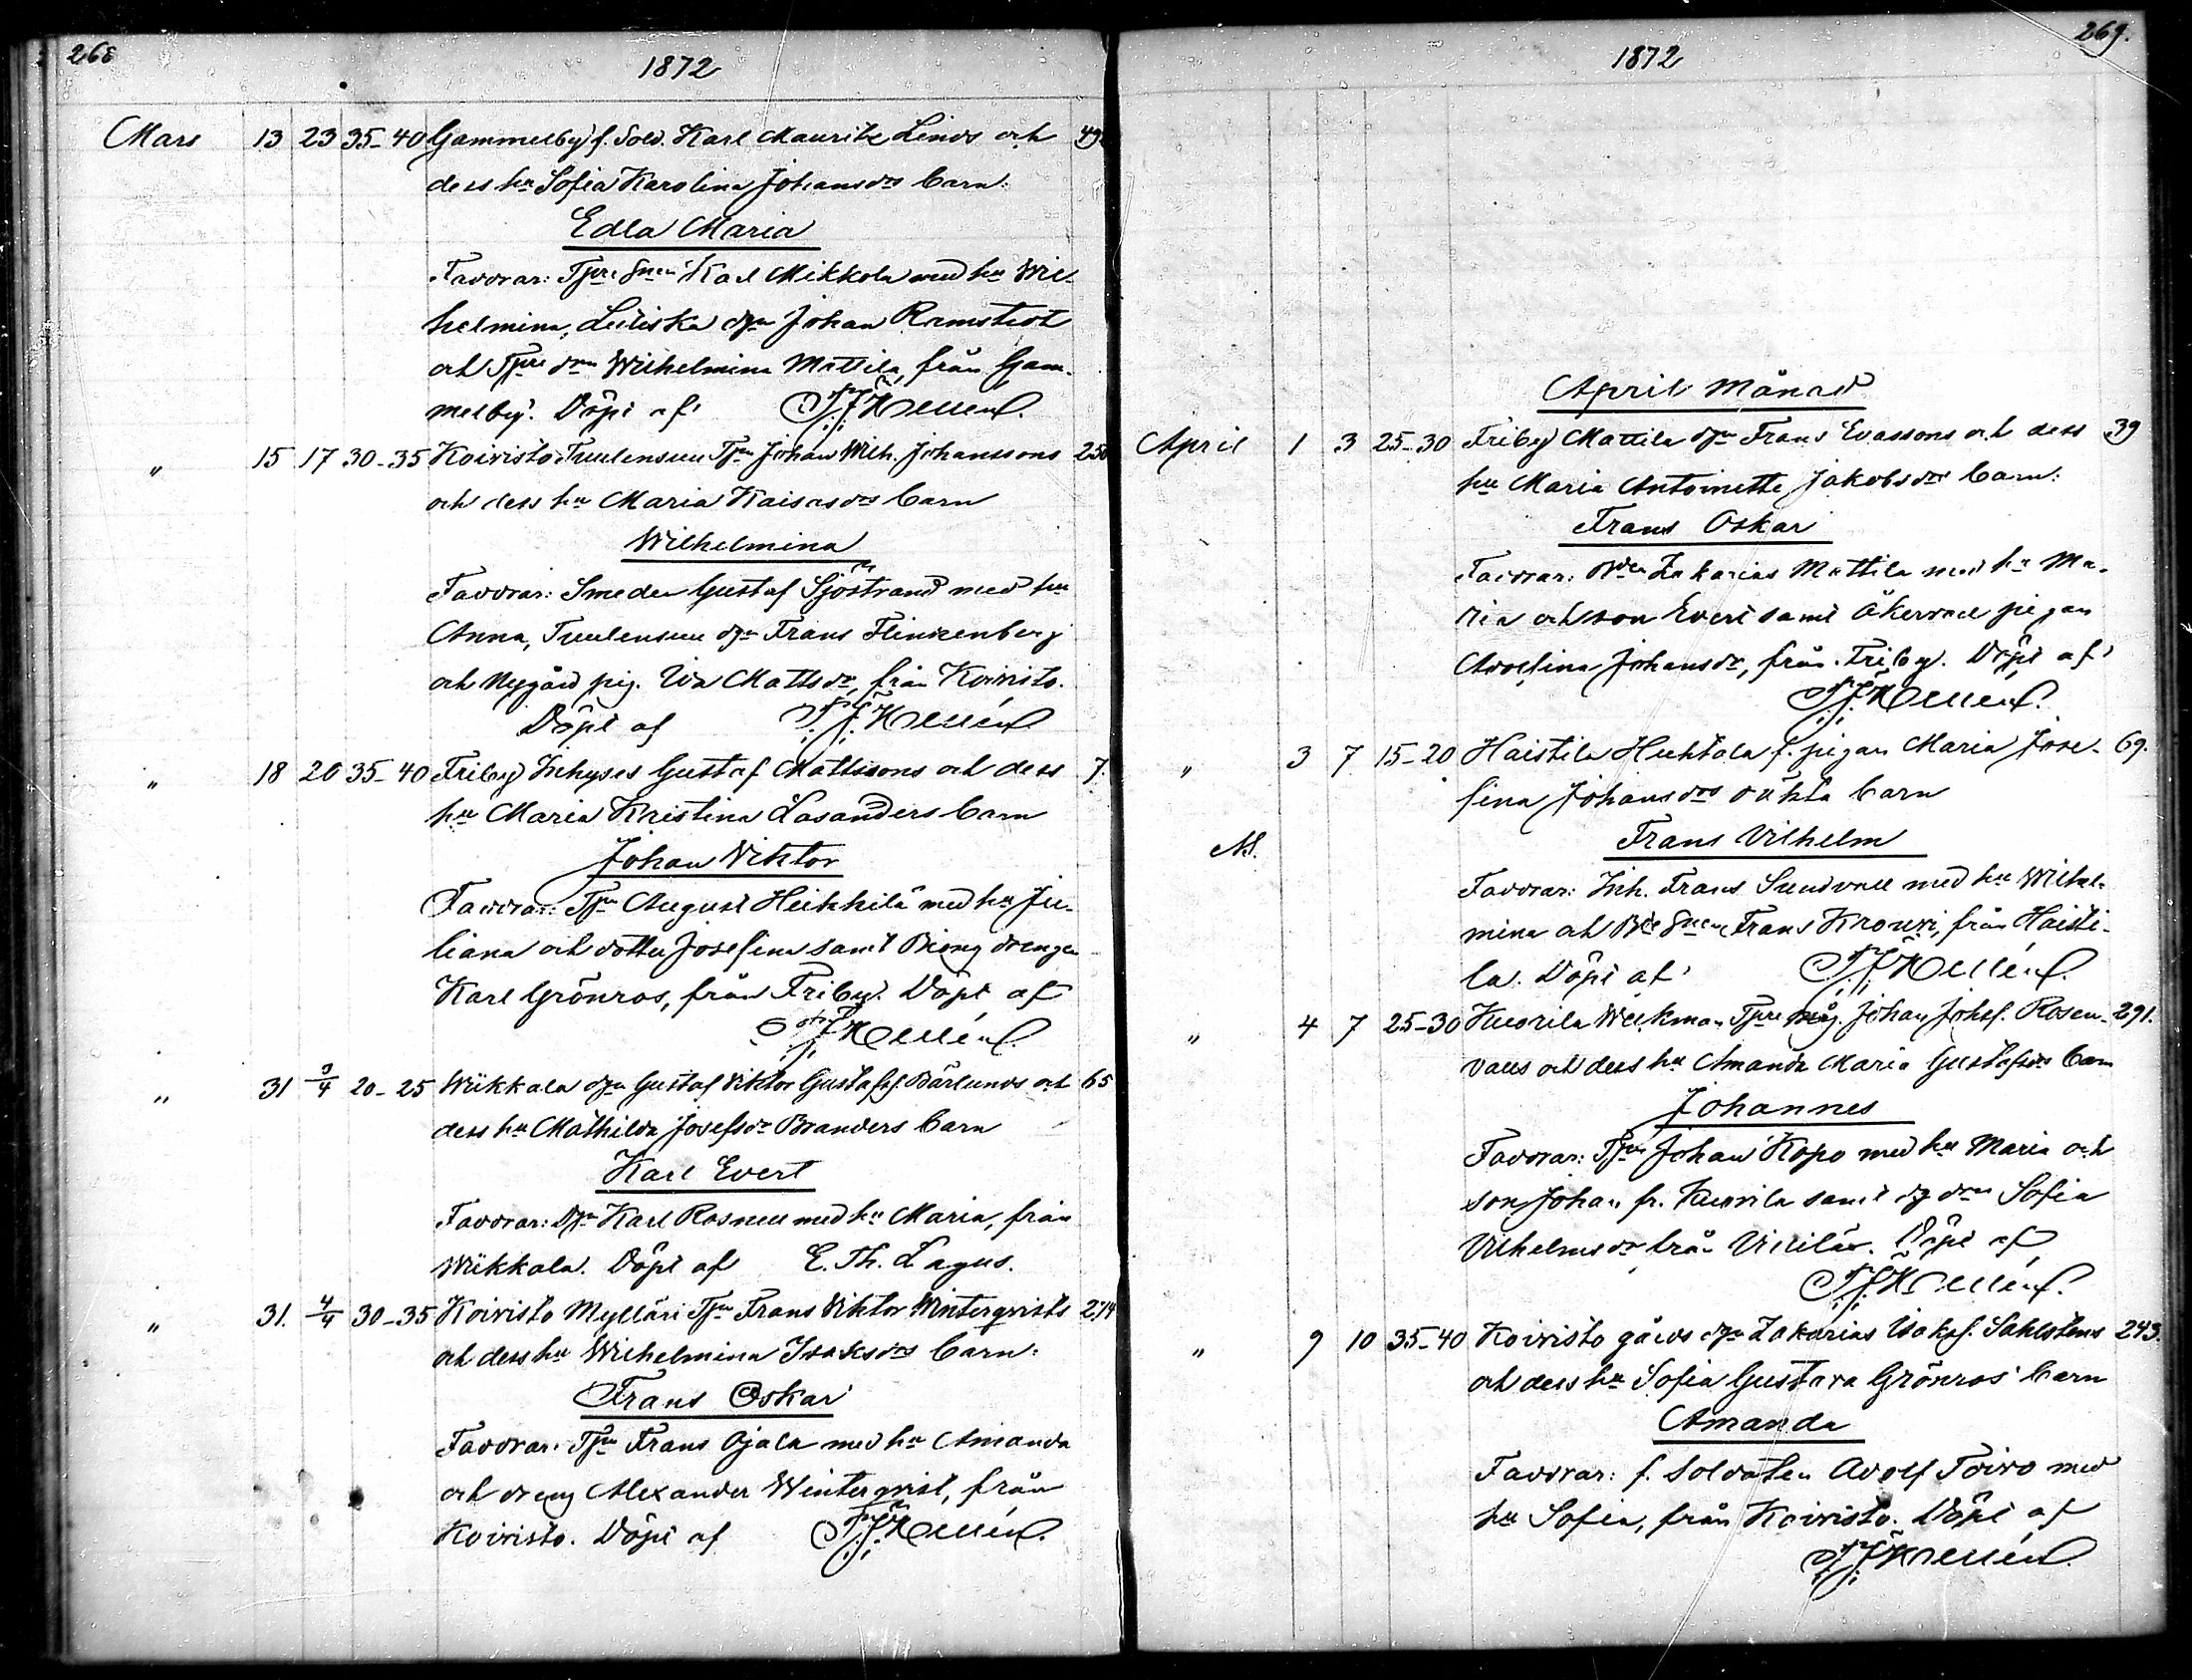 268
1872
Mars 13 23 35-40 Gammelby f. Sold. Karl Mauritz Linds och 49
dess hu Sofia Karolina Johansdrs barn:
Edla Maria
Faddrar: Karl Mikkola med hu Wil-
helmina, Johan Ramstedt
och Wilhelmina Mattila, från Gam-
melby. Döpt af
" 15 17 30-35 Koivisto Tuulensuu Tpn Johan Wilh. Johanssons 250
och dess hu Maria Kaisasdrs barn
Wilhelmina
Faddrar: Smeden Gustaf Sjöstrand med hu
Anna, Tuulensuu Frans
och Nygård pig. Ida Mattsdr, från Koivisto.
Döpt af
" 18 20 35-40 Friby Inhyses Gustaf Mattssons och dess 7.
hu Maria Kristina Lasanders barn
Johan Viktor
Faddrar: Tpn August Heikkilä med hu Ju-
liana och dotter Josefina samt drengen
Karl Grönros, från Friby. Döpt af
" 31 3/4 20-25 Wiikkala Gustaf Viktor Gustafsf. Bärlunds och 65
dess hu Mathilda Josefsdr Branders barn
Karl Evert
Faddrar: Karl Rosnell med hu Maria, från
Wiikkala. Döpt af E. Th. Lagus.
" 31. 4/4 30-35 Koivisto Mylläri Tpn Frans Viktor Winterqvists 274
och dess hu Wilhelmina Isaksdrs barn:
Frans Oskar
Faddrar: Tpn Frans Ojala med hu Amanda
och dreng Alexander Winterqvist, från
Koivisto. Döpt af
269.
1872
April Månad
April 1 3 25-30 Friby Mattila Frans Evassons och dess 39
hu Maria Antoinette Jakobsdrs barn:
Frans Oskar
Faddrar: Zakarias Mattila med hu Ma-
ria och son Evert samt Åkervall pigan
Adolfina Johansdr, från Friby. Döpt af
" 3 7 15-20 Haistila Huhtala f. pigan Maria Jose- 69.
fina Johansdrs oäkta barn
Frans Vilhelm
Faddrar: Inh. Frans Sundvall med hu Wilhel-
mina och Frans Krouvi, från Haisti-
la. Döpt af
" 4 7 25-30 Kuorila Weckman Johan Johsf. Rosen- 291.
valls och dess hu Amanda Maria Gustafsdrs barn
Johannes
Faddrar: Tpn Johan Kopo med hu Maria och
son Johan fr. Kuorila samt Sofia
Vilhelmsdr från Döpt af
" 9 10 35-40 Koivisto gårds Zakarias Isaksf. Sahlstens 243.
och dess hu Sofia Gustava Grönros barn
Amanda
Faddrar: f. Soldaten Adolf Toivo med
hu Sofia, från Koivisto. Döpt af